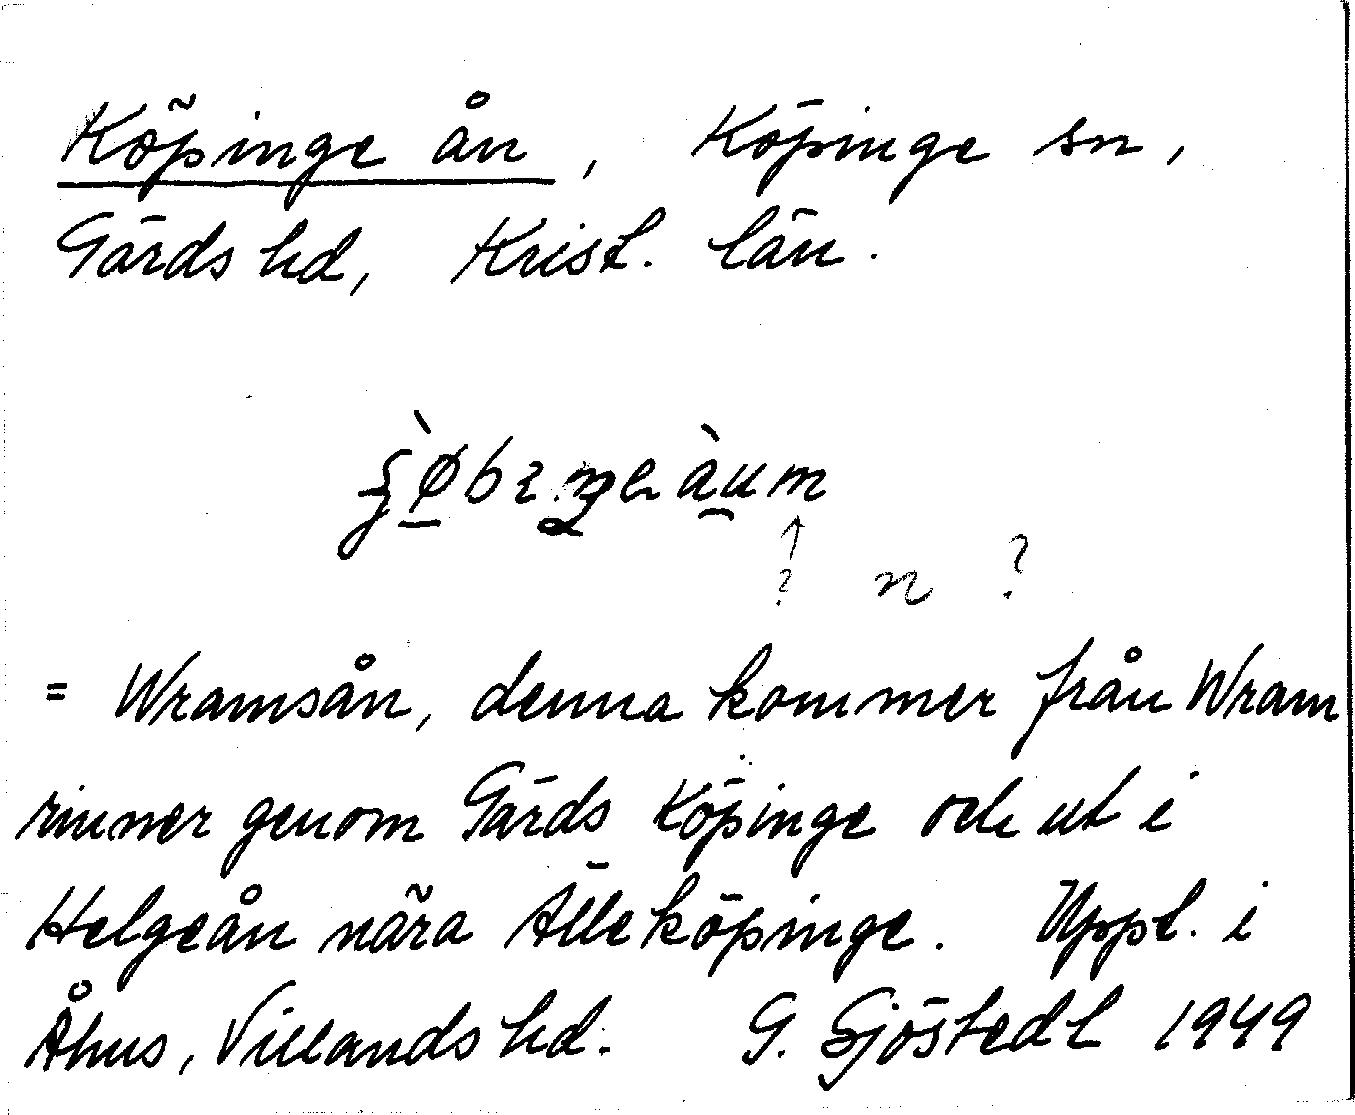 Köpinge ån, Köpinge sn,
Gärds hd, Krist. län.
? n ?
= Wramsån, denna kommer från Wram
rinner genom Gärds Köpinge och ut i
Helgeån nära Älleköpinge. Uppt. i
Åhus, Villands hd. G. Sjöstedt 1949